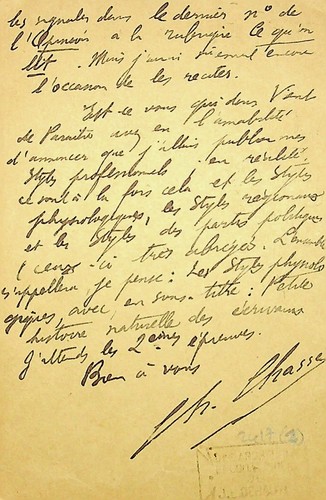 les signaler dans le dernier n° de
l'Opinion a la rubrique Ce qu'on
lit. Mais j'aurai vraiment encore
l'occasion de les
Est-ce vous qui dans Vient
de Paraître avez eu l'amabilité
d'annoncer que j'allais publier mes
Styles professionnels : en réalité
ce sont à la fois cela et les Styles
physiologiques, les Styles régionaux
et les Styles des partis politiques
(ceux-ci très abrégés. L'ensemble
s'appellera, je pense : Les Styles physiolo
giques, avec, en sous-titre : Petite
histoire naturelle des écrivains
J'attends les 2èmes épreuves.
Bien à vous
Ch. Chassé
2417 (2)